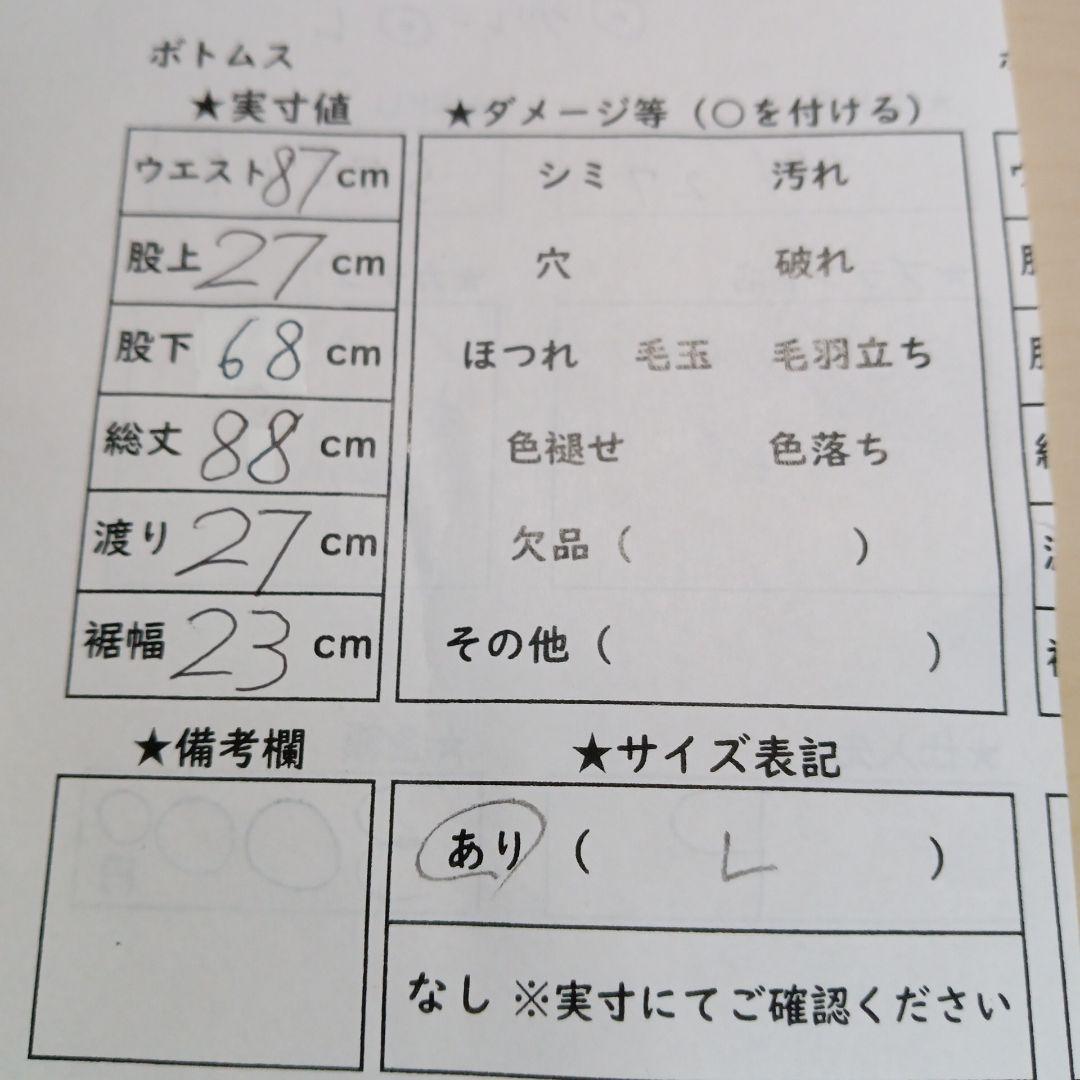 ボトムス
★実寸値
ウエスト87cm
股上27cm
股下68cm
総丈88cm
渡り27cm
裾幅23cm
★ダメージ等（○を付ける）
シミ 汚れ
穴 破れ
ほつれ 毛玉 毛羽立ち
色褪せ 色落ち
欠品（ ）
その他（ ）
★備考欄
★サイズ表記
あり（ L ）
なし ※実寸にてご確認ください